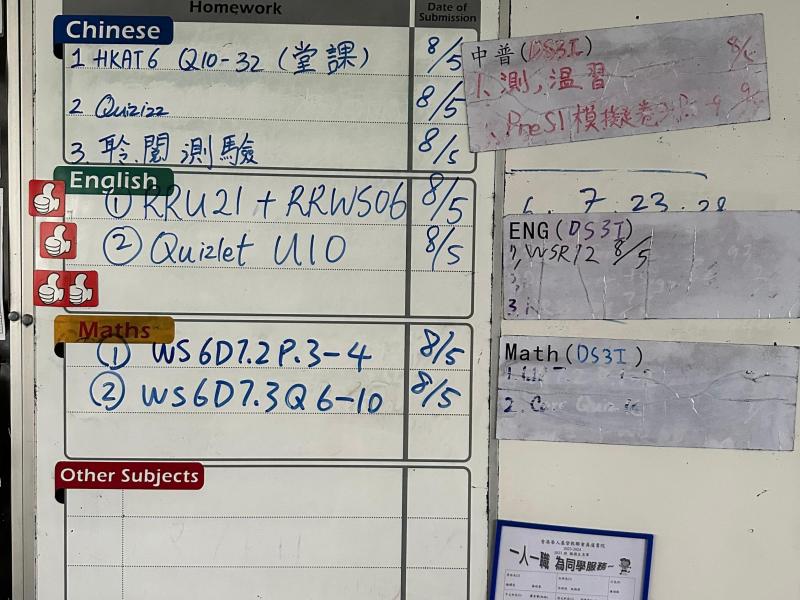 Homework
Date of Submission
Chinese
1 HKAT6 Q10-32 (堂課) 8/5
2 Quizizz 8/5
3. 聆.閱 測驗 8/5
English
① RRU21 + RRWS06 8/5
② Quizlet U10 8/5
Maths
① WS 6D7.2 P.3-4 8/5
② WS6D7.3 Q6-10 8/5
Other Subjects
中普(DS3I) 8/5
1. 測, 溫習
PreS1 模擬卷
7. 23. 28
ENG(DS3I)
1, WSR12 8/5
3.
Math(DS3I)
1.
2. Quiz
2023-2024
一人一職 為同學服務